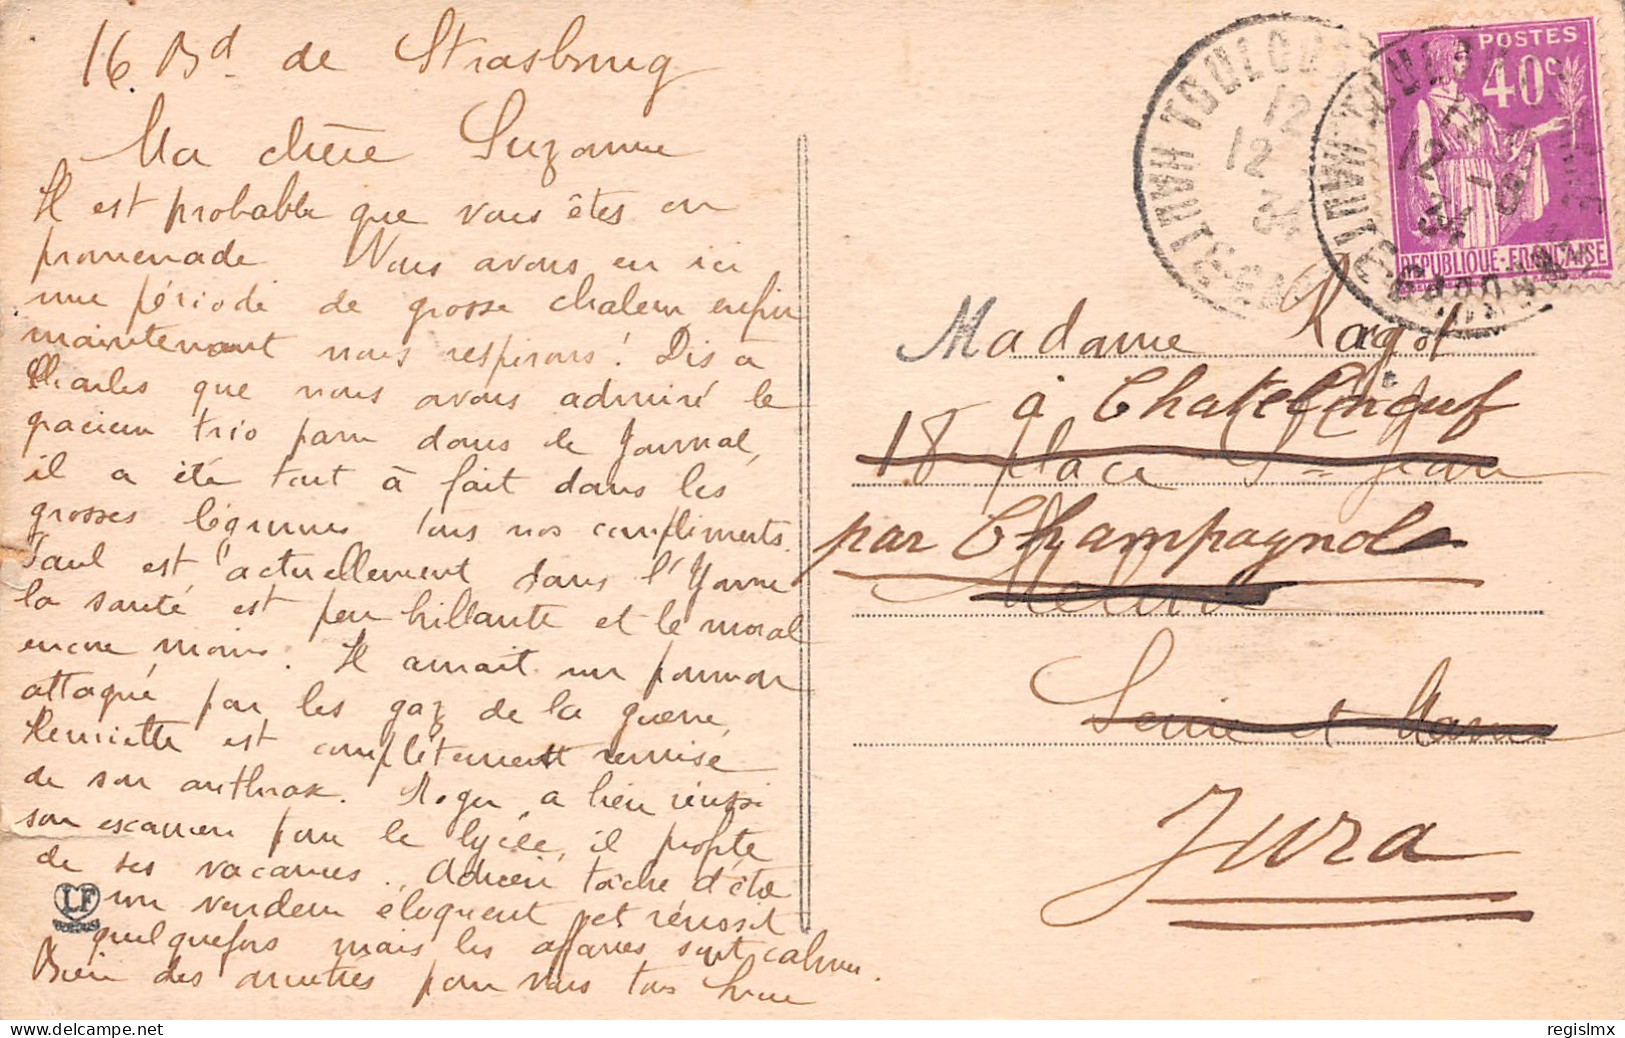 16 Bd de Strasbourg
Ma chère Suzanne
Il est probable que vous êtes en
promenade Nous avons eu ici
une période de grosse chaleur enfin
maintenant nous respirons! Dis à
Charles que nous avons admiré le
gracieux trio paru dans le Journal,
il a été tout à fait dans les
grosses légumes Tous nos compliments.
Paul est actuellement dans l'Yonne
la santé est peu brillante et le moral
encore moins. Il aurait un poumon
attaqué par les gaz de la guerre,
Henriette est complètement remise
de son anthrax. Roger a bien réussi
son examen pour le lycée, il profite
de ses vacances. Adrien tâche d'être
LF
un vendeur éloquent et réussit
quelquefois mais les affaires sont calmes.
Bien des amitiés pour vous tous
TOULOUSE
HAUTE GARONNE
12
12
34
POSTES
40c
REPUBLIQUE-FRANÇAISE
Madame Ragot
à Chatelneuf
18 place St Jean
par Champagnole
Melun
Seine et Marne
Jura
regislmx